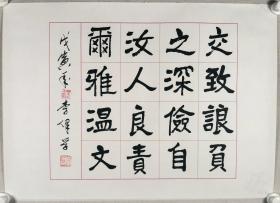 交致諒負
之深儉自
汝人良責
爾雅温文
戊寅年 李